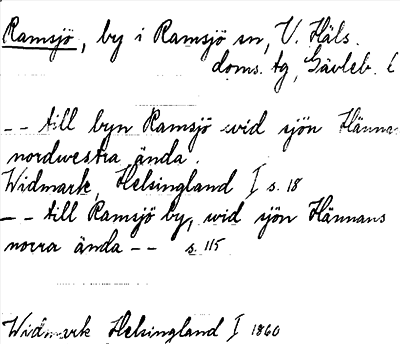 Ramsjö, by i Ramsjö sn, V. Häls.
doms. tg, Gävleb. l
-- till byn Ramsjö wid sjön Hänna
nordwestra ända.
Widmark, Helsingland I s. 18
-- till Ramsjö by, wid sjön Hännans
norra ända -- s. 115
Widmark Helsingland I 1860